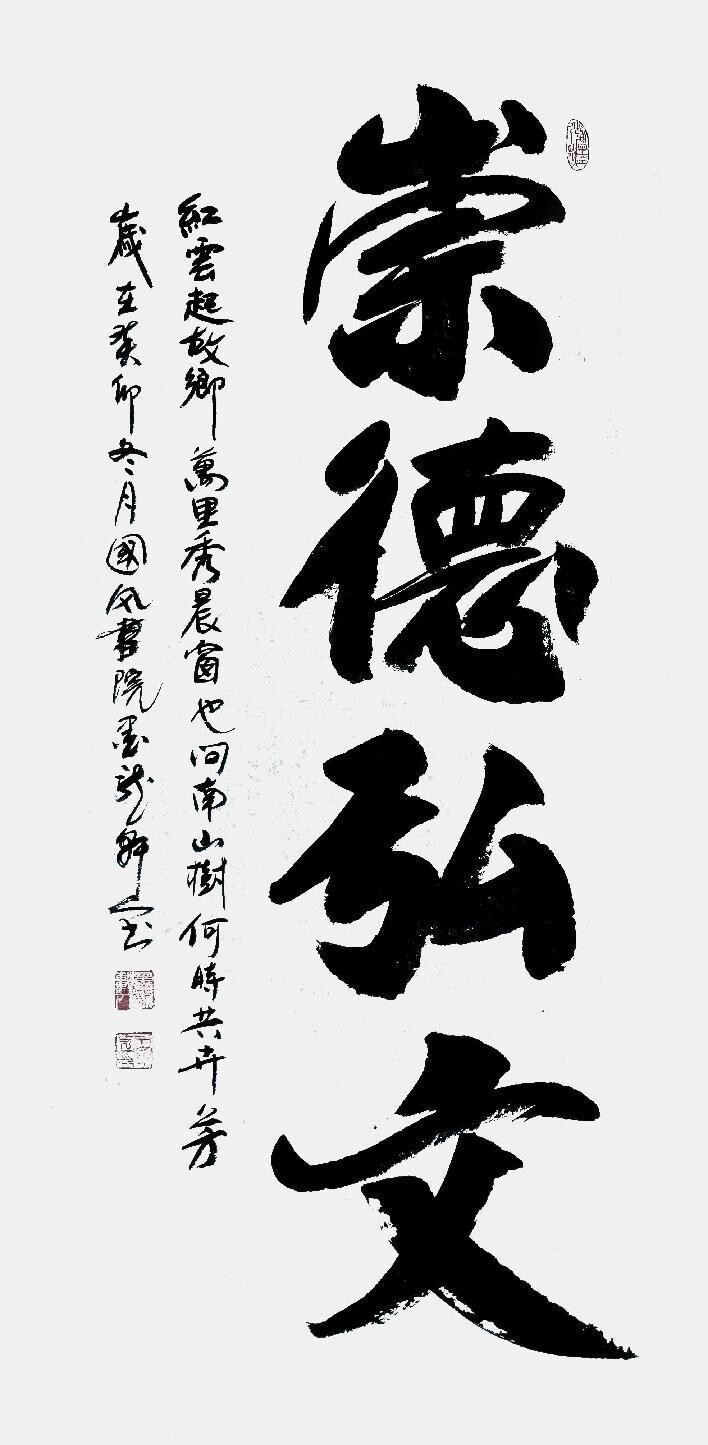 崇德弘文
紅雲起故鄉萬里秀晨窗也问南山樹何時共卉芳
歲在癸卯冬月國风書院墨龙